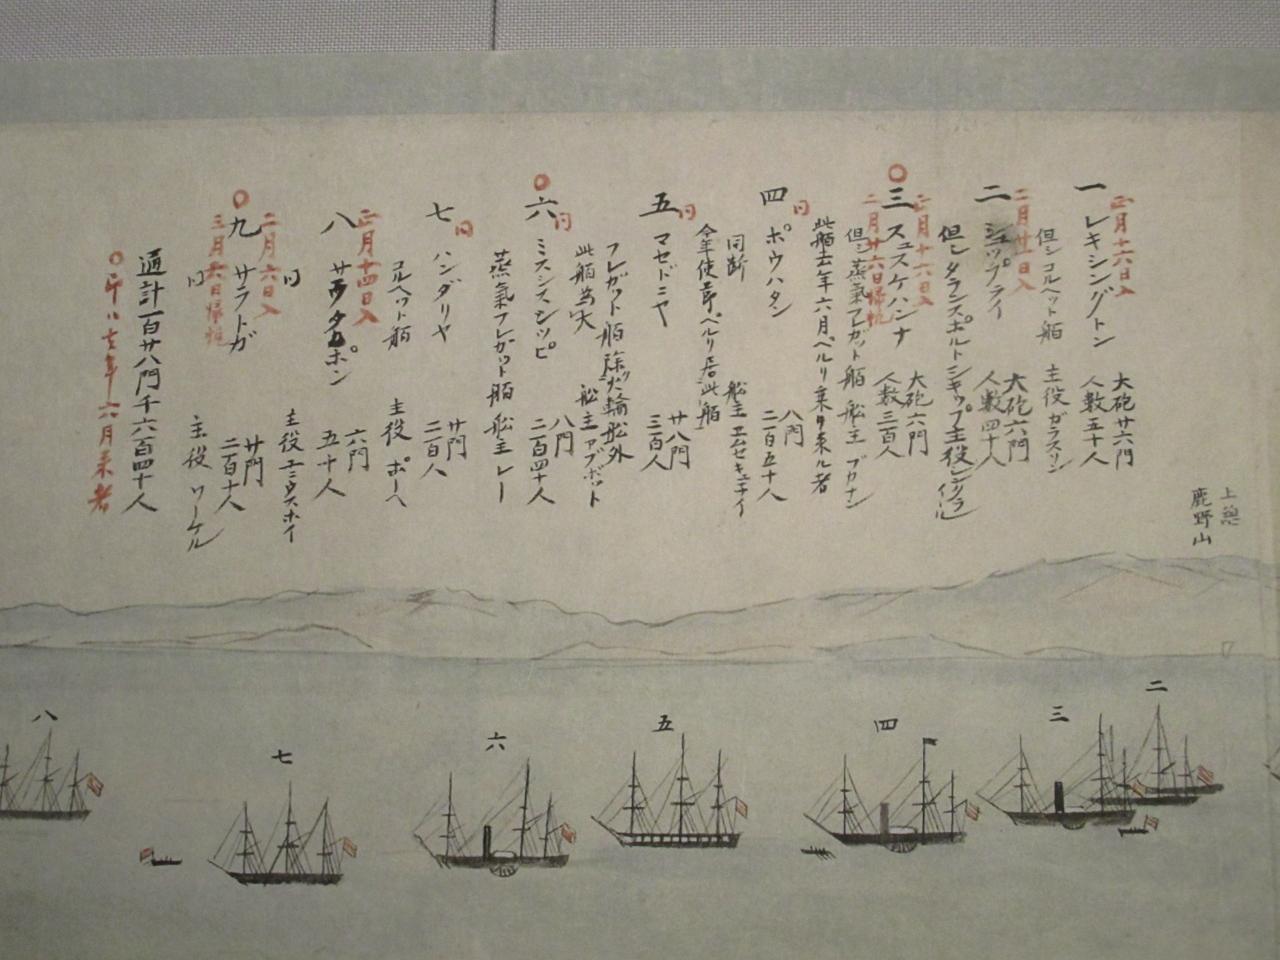 上総
鹿野山
正月十六日入
一 レキシングトン
大砲廿六門
人数五十人
但シコルヘット舶 主役ガラスリン
二月廿一日入
二 シュップライ
大砲六門
人数四十人
但シタランスポルトシキップ主役
正月十六日入
三 スュスケハンナ
二月廿六日帰帆
大砲六門
人数三百人
但シ蒸氣フレガット舶 船主 ブカナン
此舶去年六月ペルリ乗り来ル者
同
四 ポウハタン
八門
二百五十人
同断 船主
今年使節ペルリ居此舶
同
五 マセドニヤ
廿八門
三百人
フレガット舶 除火輪船外
此舶為大 船主アブボット
同
六 ミスシスシッピ
八門
二百四十人
蒸氣フレガット舶 船主 レー
同
七 ハンダリヤ
廿門
二百人
コルヘット舶 主役 ポーヘ
正月十四日入
八
六門
五十人
同 主役
二月六日入
九 サラトガ
三月六日帰帆
廿門
二百十人
同 主役 ワーケル
通計一百廿八門千六百四十人
○印ハ去年六月来者
二
三
四
五
六
七
八